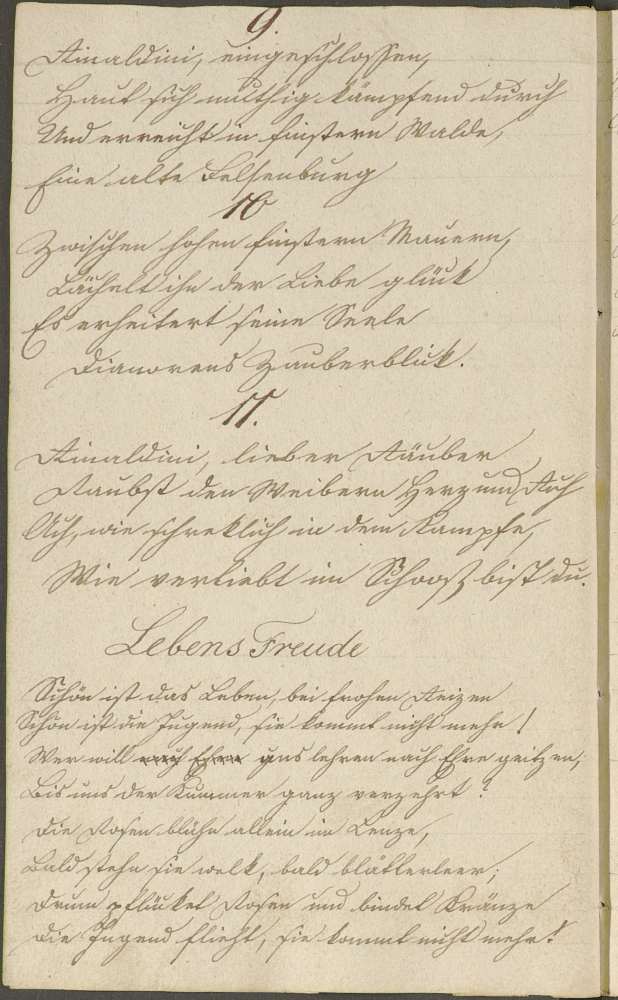 9.
Rinaldini, eingeschlossen,
Haut sich muthig kämpfend durch
Und erreicht in finstern Walde,
Eine alte Felsenburg
10
Zwischen hohen finstern Mauern,
Lächelt ihn der Liebe glück
Es erheitert seine Seele
Dianorens Zauberblick.
11.
Rinaldini, lieber Räuber
Raubst den Weibern Herz und Ruh
Ach, wie schreklich in dem Kampfe,
Wie verliebt im Schooß bist du.
Lebens Freude
Schön ist das Leben, bei frohen Reizen
Schön ist die Jugend, sie kommt nicht mehr!
Wer will nach Ehre uns lehren nach Ehre geitzen,
Bis uns der Kummer ganz verzehrt?
Die Rosen blühn allein im Lenze,
Bald stehn sie welk, bald blätterleer,
Drum pflücket Rosen und bindet Kränze
Die Jugend flieht, sie kommt nicht mehr!